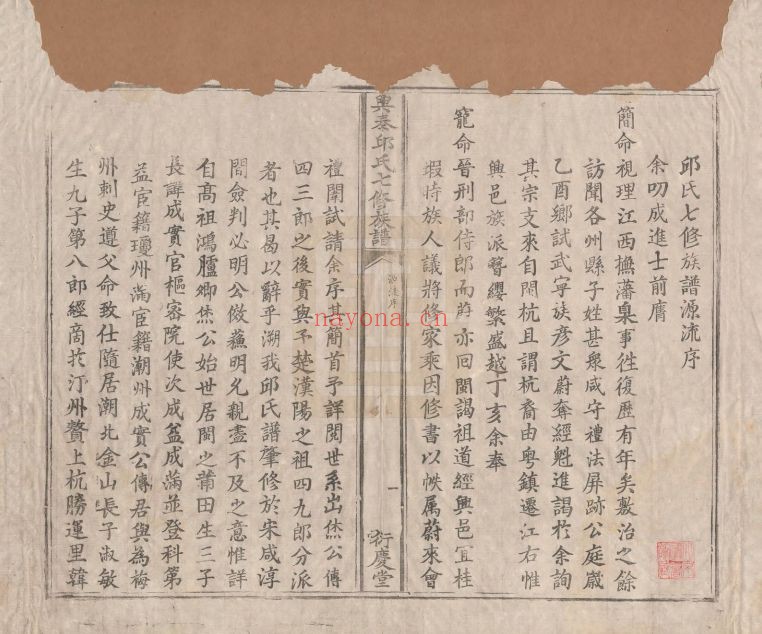 邱氏七修族譜源流序
余叨成進士前膺
簡命視理江西撫藩臬事徃復歴有年矣敷治之餘
訪聞各州縣子姓甚衆咸守禮法屏跡公庭嵗
乙酉鄉試武寧族彥文蔚奪經魁進謁扵余詢
其宗支來自閩杭且謂杭裔由粤鎮遷江右惟
興邑族派簪纓繁盛越丁亥余奉
寵命晉刑部侍郎而蔚亦回閩謁祖道經興邑宜桂
瑕恃族人議將修家乘因修書以帙属蔚來會
興泰邱氏七修族譜
源流序
一
衍慶堂
禮闈試請余序其簡首予詳閱世系出烋公傳
四三郎之後實與予楚漢陽之祖四九郎分派
者也其曷以辭乎溯我邱氏譜肇修於宋咸淳
間僉判必明公倣蘇明允親盡不及之意惟詳
自高祖鴻臚卿烋公始世居閩之莆田生三子
長諱成實官樞密院使次成益成滿並登科第
益官籍瓊州滿官籍潮州成實公傳居與為梅
州刺史遵父命致仕隨居潮北金山長子淑敏
生九子第八郎經商扵汀州贅上杭勝運里韓
nayona.cn